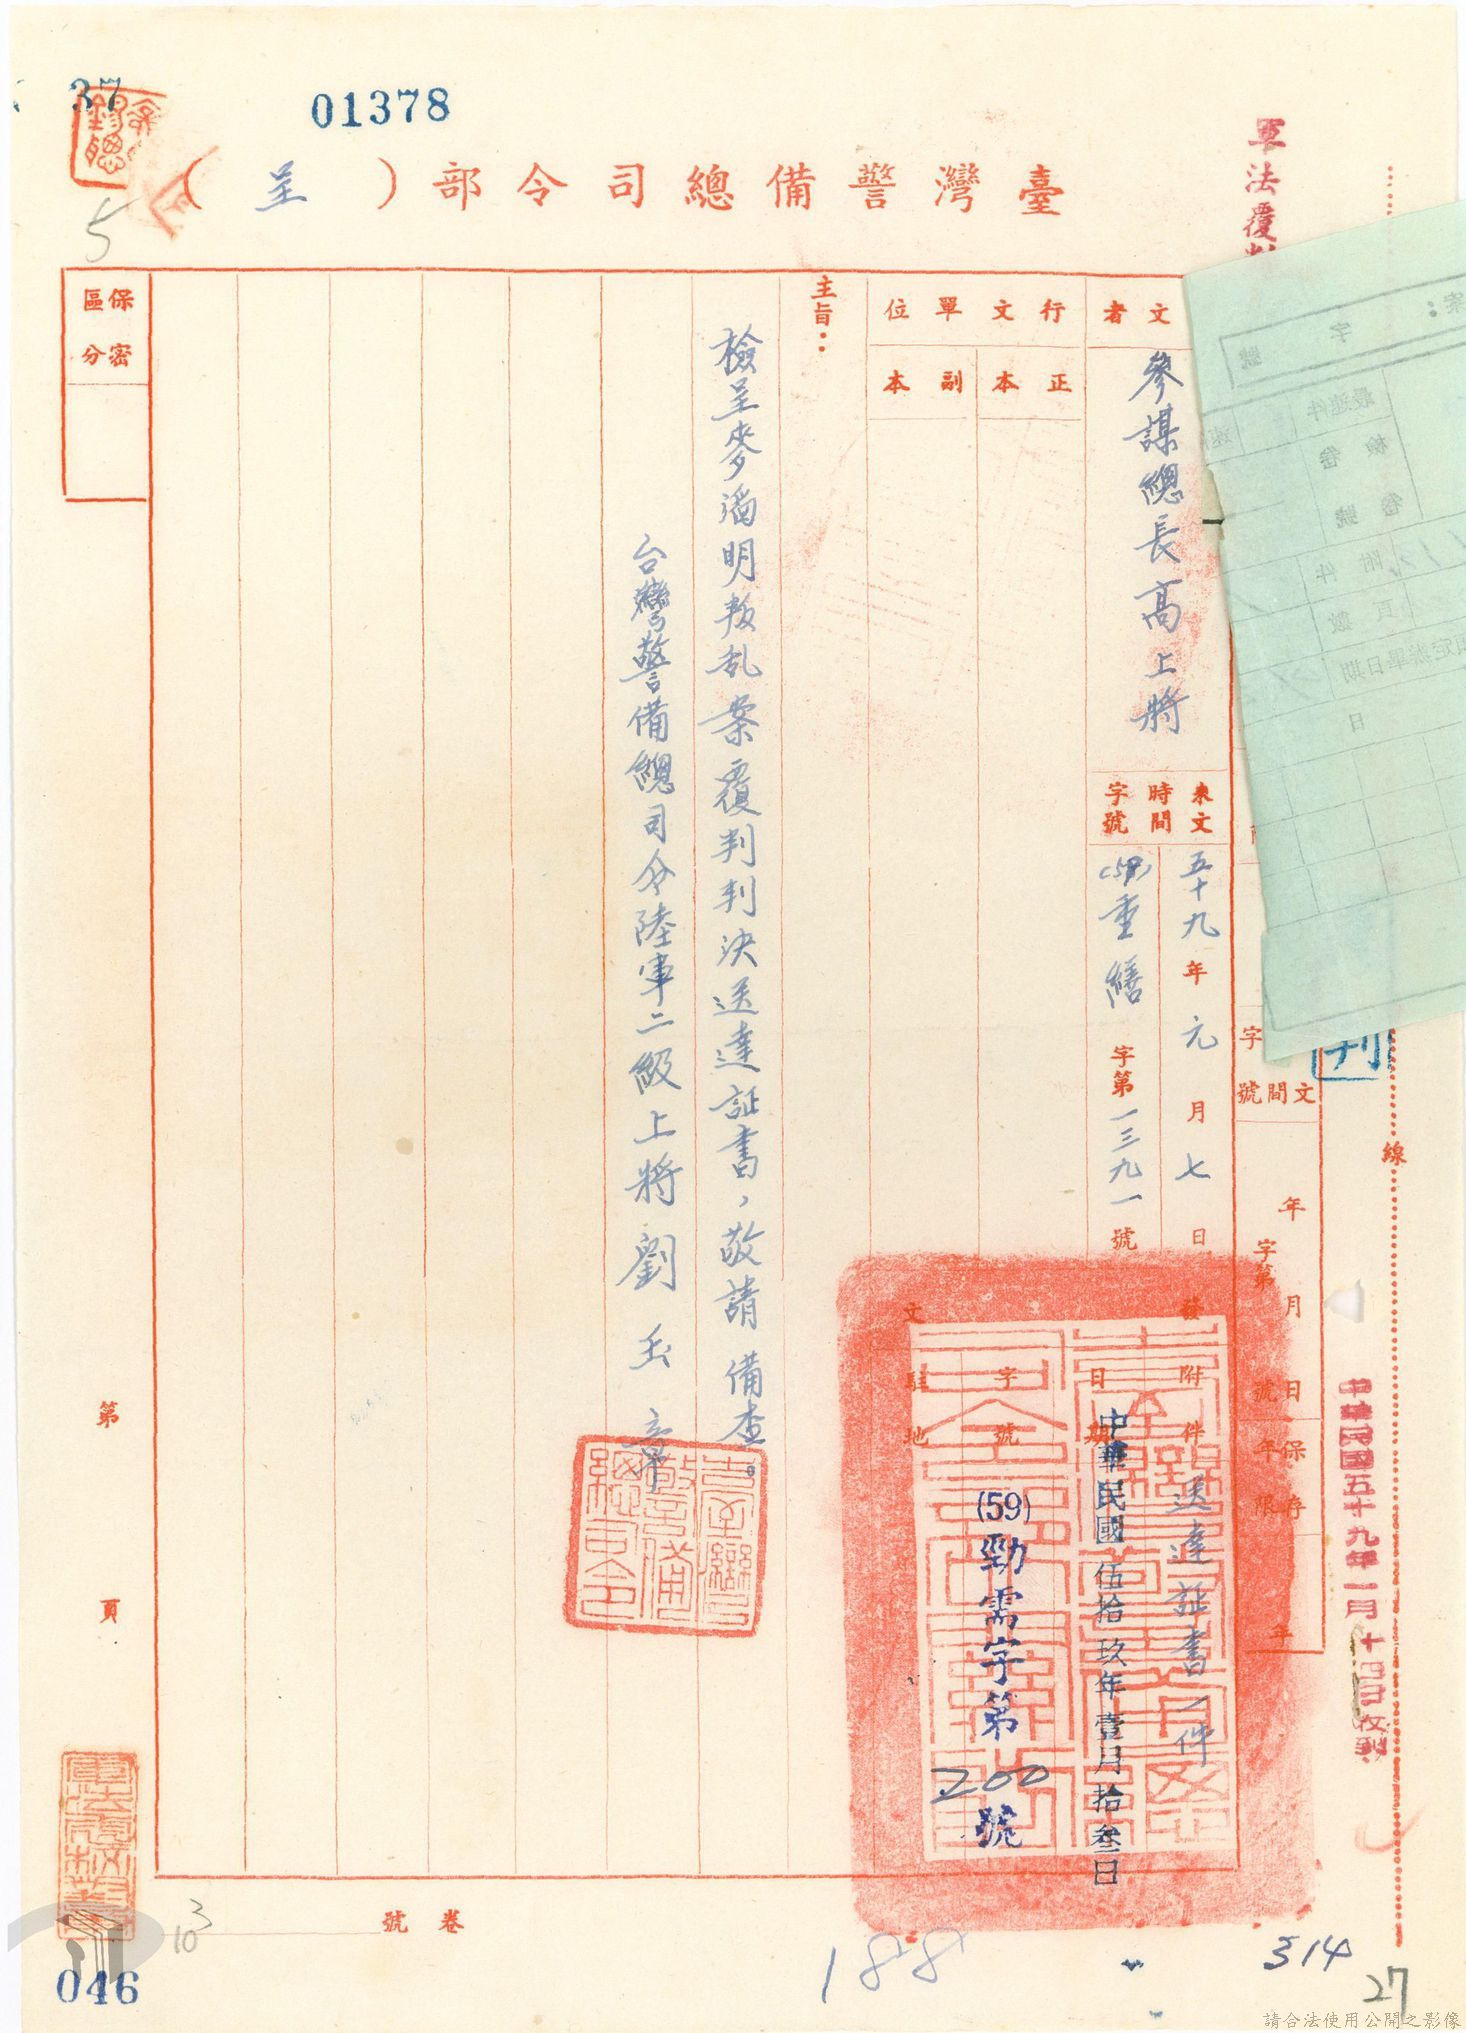 37
01378
臺灣警備總司令部（呈）
5
軍法覆判
線
受文者
參謀總長高上將
行文單位
正本
副本
來文
時間
字號
五十九年元月七日
(58)重繕字第一三九一號
文間
字號
年月日
字第號
保存年限
年
發文
附件
送達証書一件
日期
中華民國伍拾玖年壹月拾叁日
字號
(59)勁需字第200號
駐地
主旨：
檢呈麥滔明叛乱案覆判判決送達証書，敬請備查。
台灣警備總司令陸軍二級上將劉玉章
臺灣警備總司令
保密區分
第頁
中華民國五十九年一月十四日收到
卷號
3
10
046
188
314
27
請合法使用公開之影像